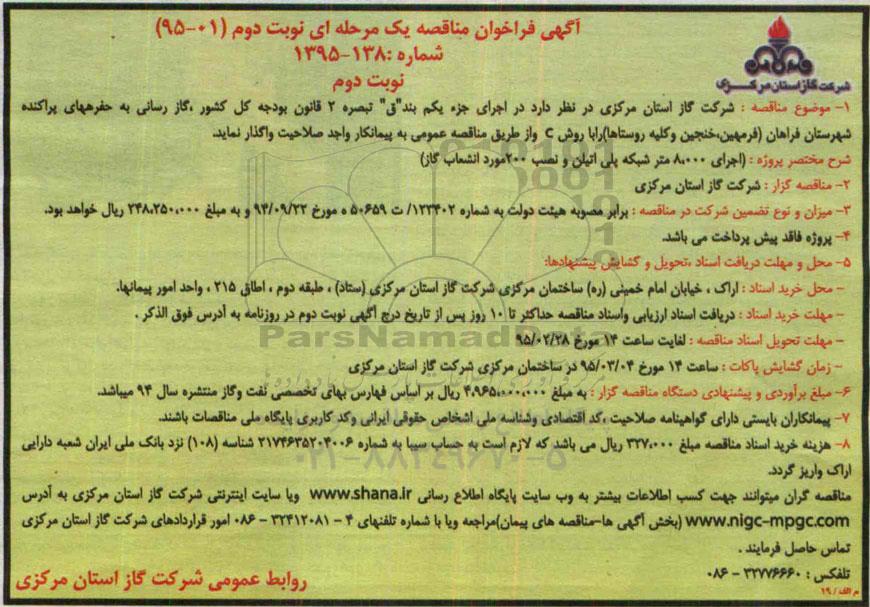 آگهی فراخوان مناقصه یک مرحله ای نوبت دوم (۰۱-۹۵)
شماره :۱۳۸-۱۳۹۵
نوبت دوم
شرکت گاز استان مرکزی
۱- موضوع مناقصه : شرکت گاز استان مرکزی در نظر دارد در اجرای جزء یکم بند"ق" تبصره ۲ قانون بودجه کل کشور ،گاز رسانی به حفرههای پراکنده
شهرستان فراهان (فرمهین،خنجین وکلیه روستاها)رابا روش C واز طریق مناقصه عمومی به پیمانکار واجد صلاحیت واگذار نماید.
شرح مختصر پروژه : (اجرای ۸،۰۰۰ متر شبکه پلی اتیلن و نصب ۲۰۰مورد انشعاب گاز)
۲- مناقصه گزار : شرکت گاز استان مرکزی
۳- میزان و نوع تضمین شرکت در مناقصه : برابر مصوبه هیئت دولت به شماره ۱۲۳۴۰۲/ ت ۵۰۶۵۹ ه مورخ ۹۴/۰۹/۲۲ و به مبلغ ۲۴۸،۲۵۰،۰۰۰ ریال خواهد بود.
۴- پروژه فاقد پیش پرداخت می باشد.
۵- محل و مهلت دریافت اسناد ،تحویل و گشایش پیشنهادها:
- محل خرید اسناد : اراک ، خیابان امام خمینی (ره) ساختمان مرکزی شرکت گاز استان مرکزی (ستاد) ، طبقه دوم ، اطاق ۲۱۵ ، واحد امور پیمانها.
- مهلت خرید اسناد : دریافت اسناد ارزیابی واسناد مناقصه حداکثر تا ۱۰ روز پس از تاریخ درج آگهی نوبت دوم در روزنامه به آدرس فوق الذکر .
- مهلت تحویل اسناد مناقصه : لغایت ساعت ۱۴ مورخ ۹۵/۰۲/۲۸
- زمان گشایش پاکات : ساعت ۱۴ مورخ ۹۵/۰۳/۰۴ در ساختمان مرکزی شرکت گاز استان مرکزی
۶- مبلغ برآوردی و پیشنهادی دستگاه مناقصه گزار : به مبلغ ۴،۹۶۵،۰۰۰،۰۰۰ ریال بر اساس فهارس بهای تخصصی نفت وگاز منتشره سال ۹۴ میباشد.
۷- پیمانکاران بایستی دارای گواهینامه صلاحیت ،کد اقتصادی وشناسه ملی اشخاص حقوقی ایرانی وکد کاربری پایگاه ملی مناقصات باشند.
۸- هزینه خرید اسناد مناقصه مبلغ ۳۲۷،۰۰۰ ریال می باشد که لازم است به حساب سیبا به شماره ۲۱۷۴۶۳۵۲۰۴۰۰۶ شناسه (۱۰۸) نزد بانک ملی ایران شعبه دارایی
اراک واریز گردد.
مناقصه گران میتوانند جهت کسب اطلاعات بیشتر به وب سایت پایگاه اطلاع رسانی www.shana.ir ویا سایت اینترنتی شرکت گاز استان مرکزی به آدرس
www.nigc-mpgc.com (بخش آگهی ها-مناقصه های پیمان)مراجعه ویا با شماره تلفنهای ۴ - ۳۲۴۱۲۰۸۱ - ۰۸۶ امور قراردادهای شرکت گاز استان مرکزی
تماس حاصل فرمایند .
تلفکس : ۳۲۷۷۶۶۶۰ - ۰۸۶
روابط عمومی شرکت گاز استان مرکزی
م الف / ۱۹
ParsNamadData
۰۲۱-۸۸۳۴۹۶۷۰-۵